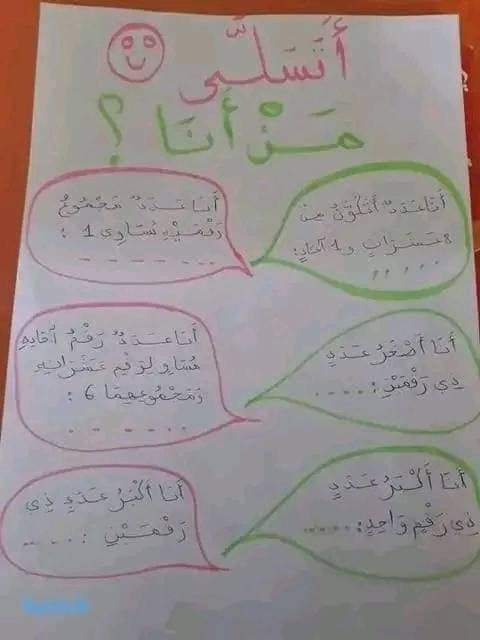 أَتَسَلَّى
مَنْ أَنَا ؟
أَنَا عَدَدٌ أَتَكَوَّنُ مِنْ
8 عَشَرَاتٍ و 1 آحَادٍ:
.....
أَنَا عَدَدٌ مَجْمُوعُ
رَقْمَيْهِ يُسَاوِي 1 :
......
أَنَا أَصْغَرُ عَدَدٍ
ذِي رَقْمَيْنِ: ....
أَنَا عَدَدٌ رَقْمُ آحَادِهِ
مُسَاوٍ لِرَقْمِ عَشَرَاتِهِ
وَمَجْمُوعُهُمَا 6 :
......
أَنَا أَكْبَرُ عَدَدٍ
ذِي رَقْمٍ وَاحِدٍ: .....
أَنَا أَكْبَرُ عَدَدٍ ذِي
رَقْمَيْنِ : ....